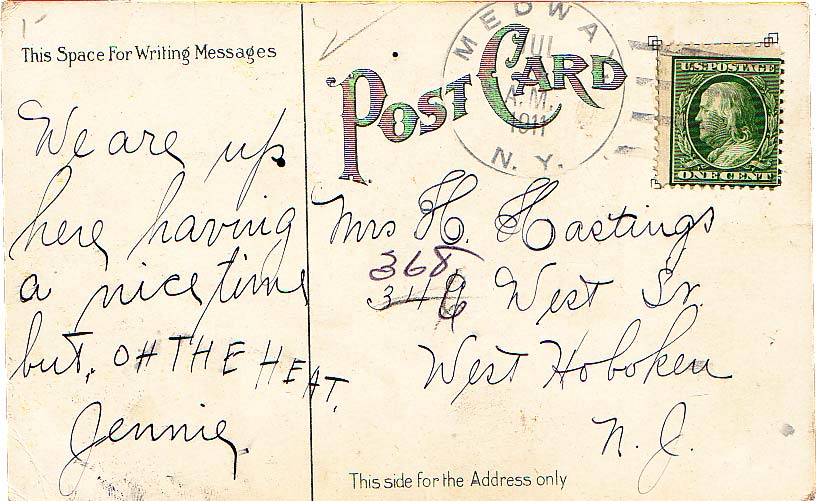 This Space For Writing Messages
We are up
here having
a nice time
but, OH THE HEAT.
Jennie
POST CARD
MEDWAY
JUL
A.M.
1911
N. Y.
U.S. POSTAGE
ONE CENT
Mrs H. Hastings
368
West St.
West Hoboken
N. J.
This side for the Address only